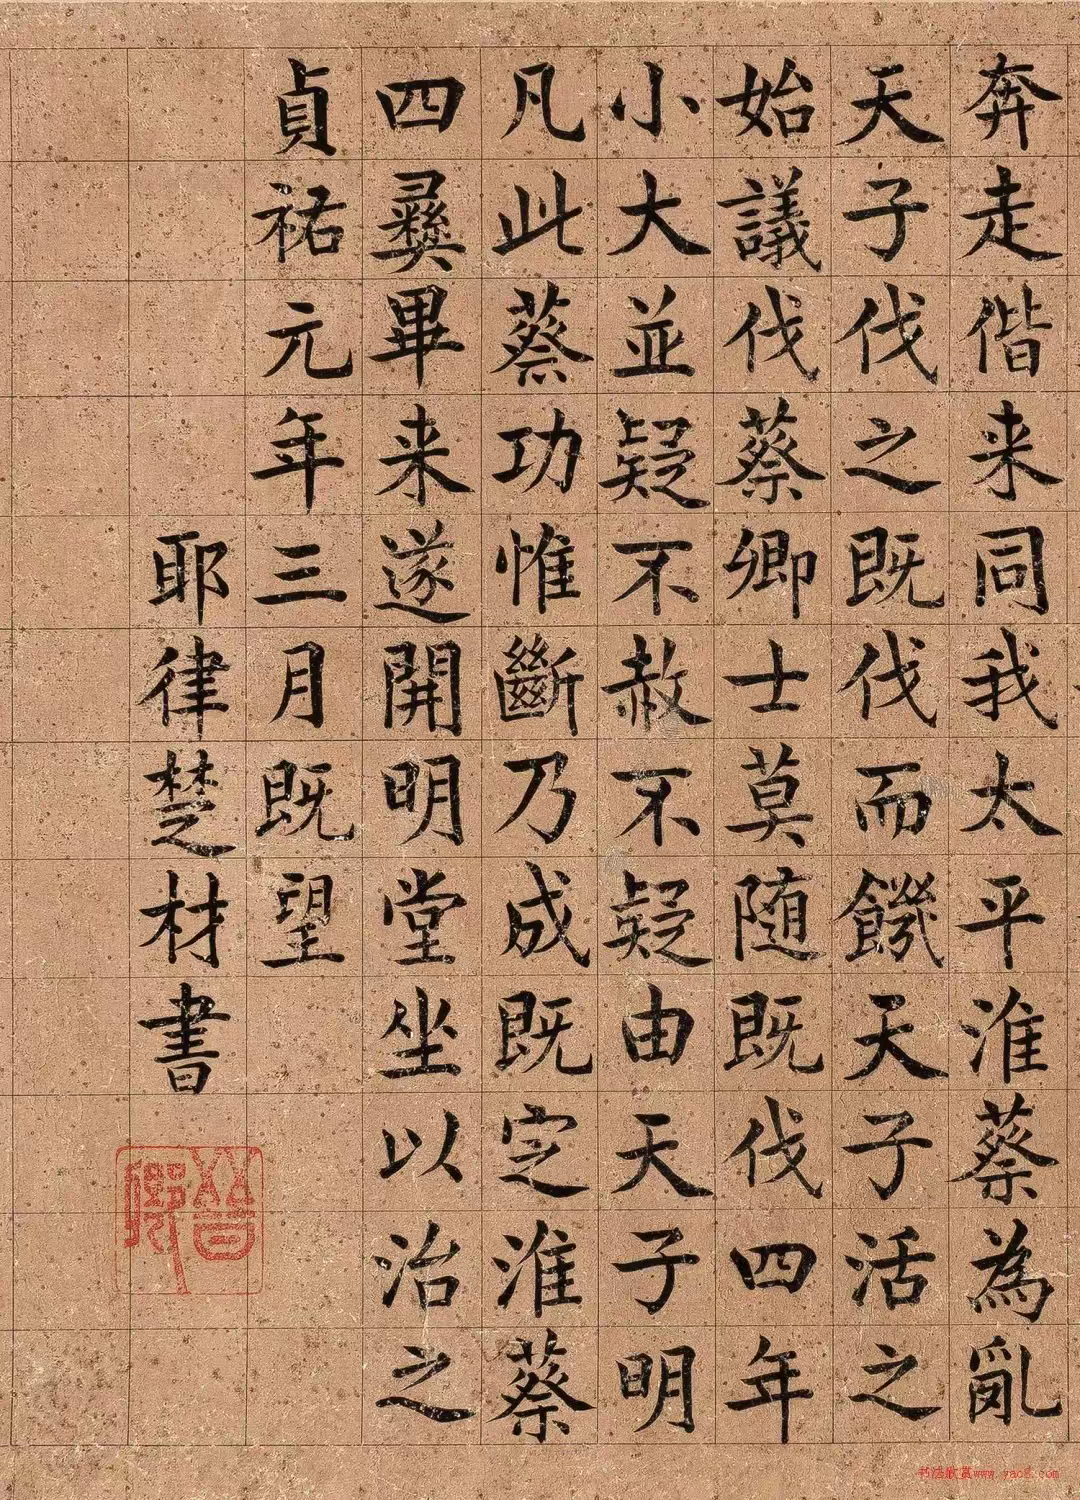 奔走偕来同我太平淮蔡為亂
天子伐之既伐而饑天子活之
始議伐蔡卿士莫随既伐四年
小大並疑不赦不疑由天子明
凡此蔡功惟斷乃成既定淮蔡
四彝畢来遂開明堂坐以治之
貞祐元年三月既望
耶律楚材書
晉卿
书法欣赏www.yac8.com